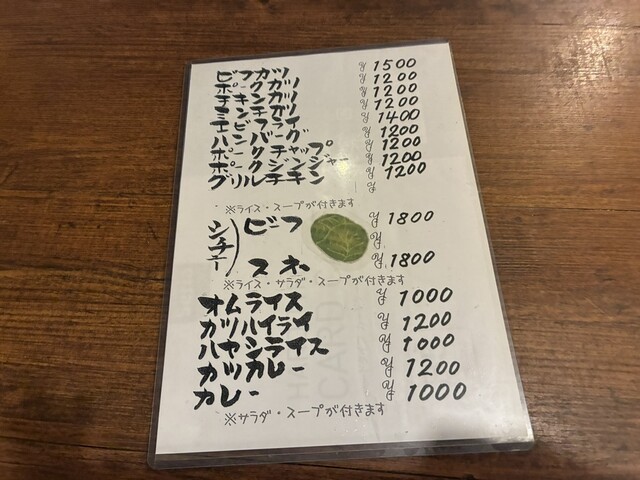 ビフカツ ¥1500
ポークカツ ¥1200
チキンカツ ¥1200
ミンチカツ ¥1200
エビフライ ¥1400
ハンバーグ ¥1200
ポークチャップ ¥1200
ポークジンジャー ¥1200
グリルチキン ¥1200
¥
※ライス・スープが付きます
シチュー
ビーフ ¥1800
¥
スネ ¥1800
※ライス・サラダ・スープが付きます
オムライス ¥1000
カツハイライ ¥1200
ハヤシライス ¥1000
カツカレー ¥1200
カレー ¥1000
※サラダ・スープが付きます